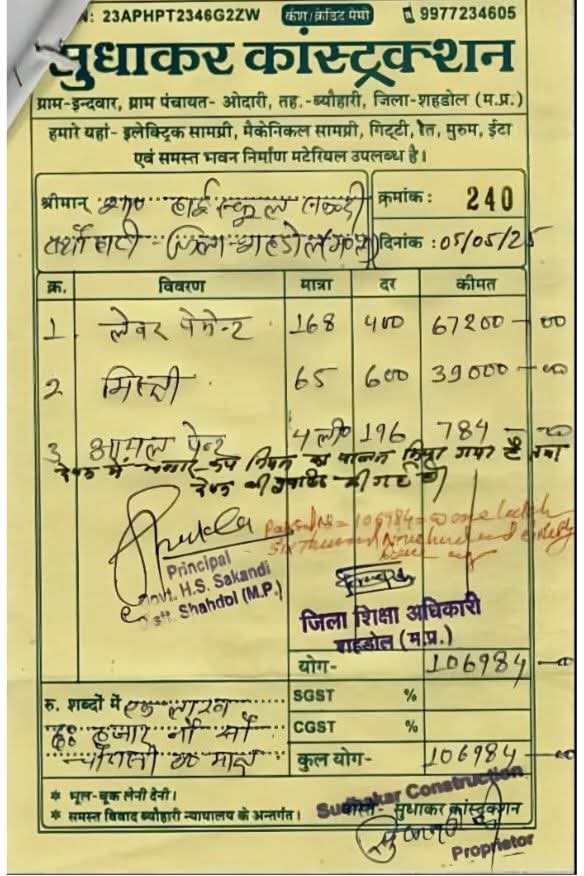 23APHPT2346G2ZW कॅश/क्रेडिट मेमो 9977234605
सुधाकर कांस्ट्रक्शन
ग्राम-इन्दवार, ग्राम पंचायत- ओदारी, तह.-ब्यौहारी, जिला-शहडोल (म.प्र.)
हमारे यहां- इलेक्ट्रिक सामग्री, मैकेनिकल सामग्री, गिट्टी, रेत, मुरुम, ईटा
एवं समस्त भवन निर्माण मटेरियल उपलब्ध है।
श्रीमान् हाई स्कूल क्रमांक: 240
जिला-शहडोल दिनांक : 05/05/25
क्र. विवरण मात्रा दर कीमत
1 लेबर पेमेन्ट 168 400 67200-00
2 मिस्त्री 65 600 39000-00
3 आयल पेन्ट 4 ली० 196 784-00
का पालन किया गया है तथा
की गई है
Passed Rs= 106984=00 one lakh
Six thousand Nine hundred eighty
four
Principal
Govt. H.S. Sakandi
Distt. Shahdol (M.P.)
जिला शिक्षा अधिकारी
शहडोल (म.प्र.)
योग- 106984-00
रु. शब्दों में एक लाख SGST %
छः हजार नौ सौ CGST %
चौरासी रु मात्र कुल योग- 106984-00
* भूल-चूक लेनी देनी।
* समस्त विवाद ब्यौहारी न्यायालय के अन्तर्गत।
Sudhakar Construction
वास्ते- सुधाकर कांस्ट्रक्शन
Proprietor